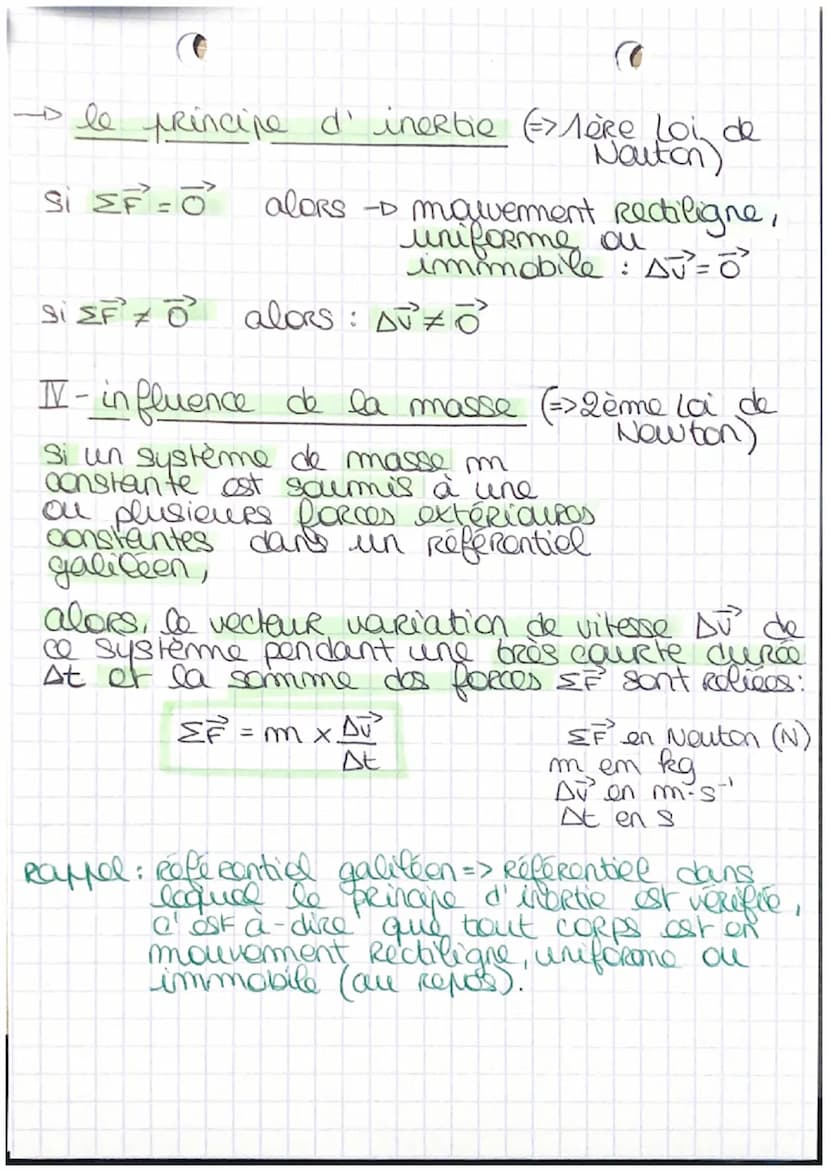 → le principe d'inertie (=> 1ère Loi de
Newton)
Si ΣF⃗ = 0⃗ alors → mouvement rectiligne,
uniforme ou
immobile : Δv⃗ = 0⃗
Si ΣF⃗ ≠ 0⃗ alors : Δv⃗ ≠ 0⃗
IV - influence de la masse (=> 2ème Loi de
Newton)
Si un système de masse m
constante est soumis à une
ou plusieurs forces extérieures
constantes dans un référentiel
galiléen,
alors, le vecteur variation de vitesse Δv⃗ de
ce système pendant une très courte durée
Δt et la somme des forces ΣF⃗ sont reliées :
ΣF⃗ = m × Δv⃗/Δt
ΣF⃗ en Newton (N)
m em kg
Δv⃗ en m·s⁻¹
Δt en s
Rappel : référentiel galiléen => Référentiel dans
lequel le principe d'inertie est vérifié,
c'est à-dire que tout corps est en
mouvement Rectiligne, uniforme ou
immobile (au repos).